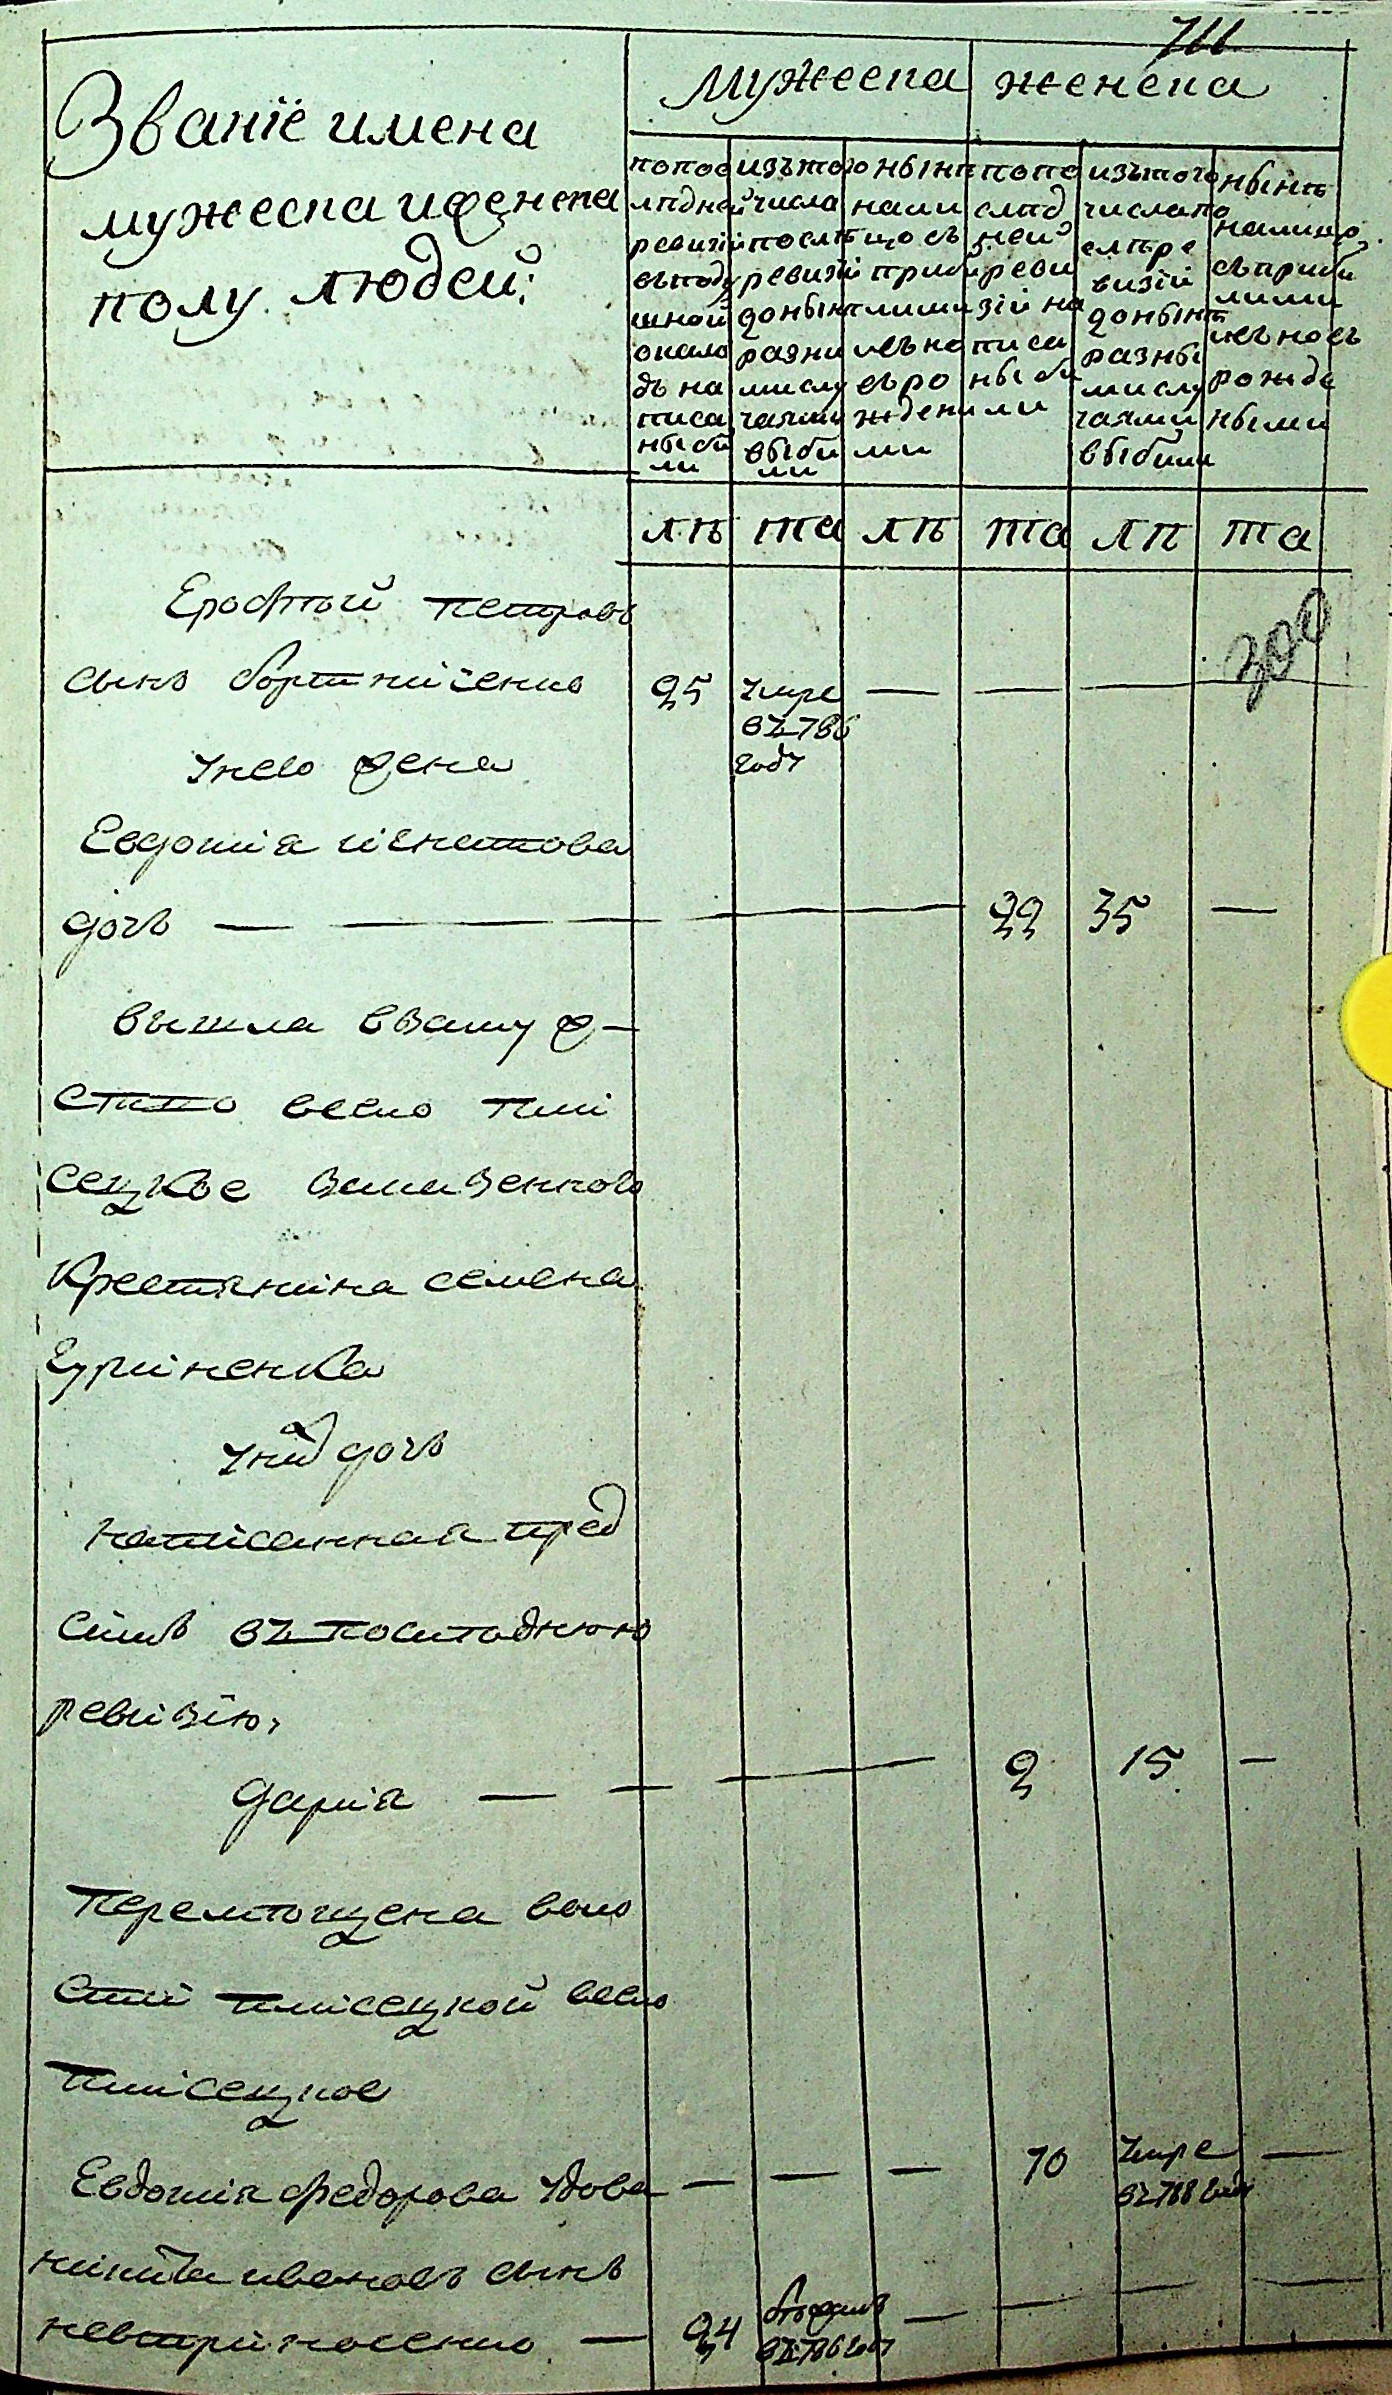 711
Званїе имена
мужеска иженска
полу людей:
Мужеска женска
попос
лѣдней
ревизїи
въподу
шной
окало
дъ на
писа
ны бы
ли
изътого
числа
послѣ
ревизїи
донынѣ
разны
мислу
чаями
выбы
ли
нынѣ
нали
цо съ
прибы
лыми
исъно
въро
жденны
ми
попо
слѣд
ней
реви
зїи на
писа
ны бы
ли
изътого
числапо
слѣ ре
визїи
донынѣ
разны
мислу
чаями
выбыли
нынѣ
налицо
съприбы
лими
исъновъ
рожде
ными
лѣ та лѣ та лѣ та
300
Ерофѣй петровъ
сынъ бортниченко 25 умре — — — —
въ786
году
Унего жена
Евдокїа игнатова
дочъ — — — — — 33 35 —
вышла взаму ж
ство всело пли
сецкое заказенного
крестянина семена
Гуриненка
Унихъ дочъ
написанная пред
симъ въ послѣднюю
ревизїю,
Дарїа — — — — 2 15 —
перемѣщена воло
сти плисецкой село
плисецкое
Евдокїа федорова удова — — — 70 умре —
въ788 году
никита ивановъ сынъ
невприносенко — 24 — — — —
въ786 году